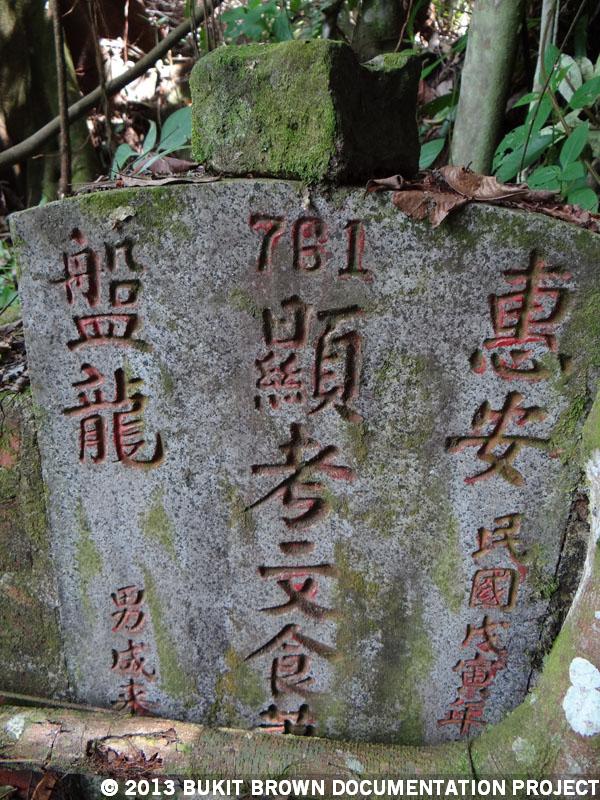 761
惠安
民國戊寅年
顯考文食
盤龍
男成來
© 2013 BUKIT BROWN DOCUMENTATION PROJECT